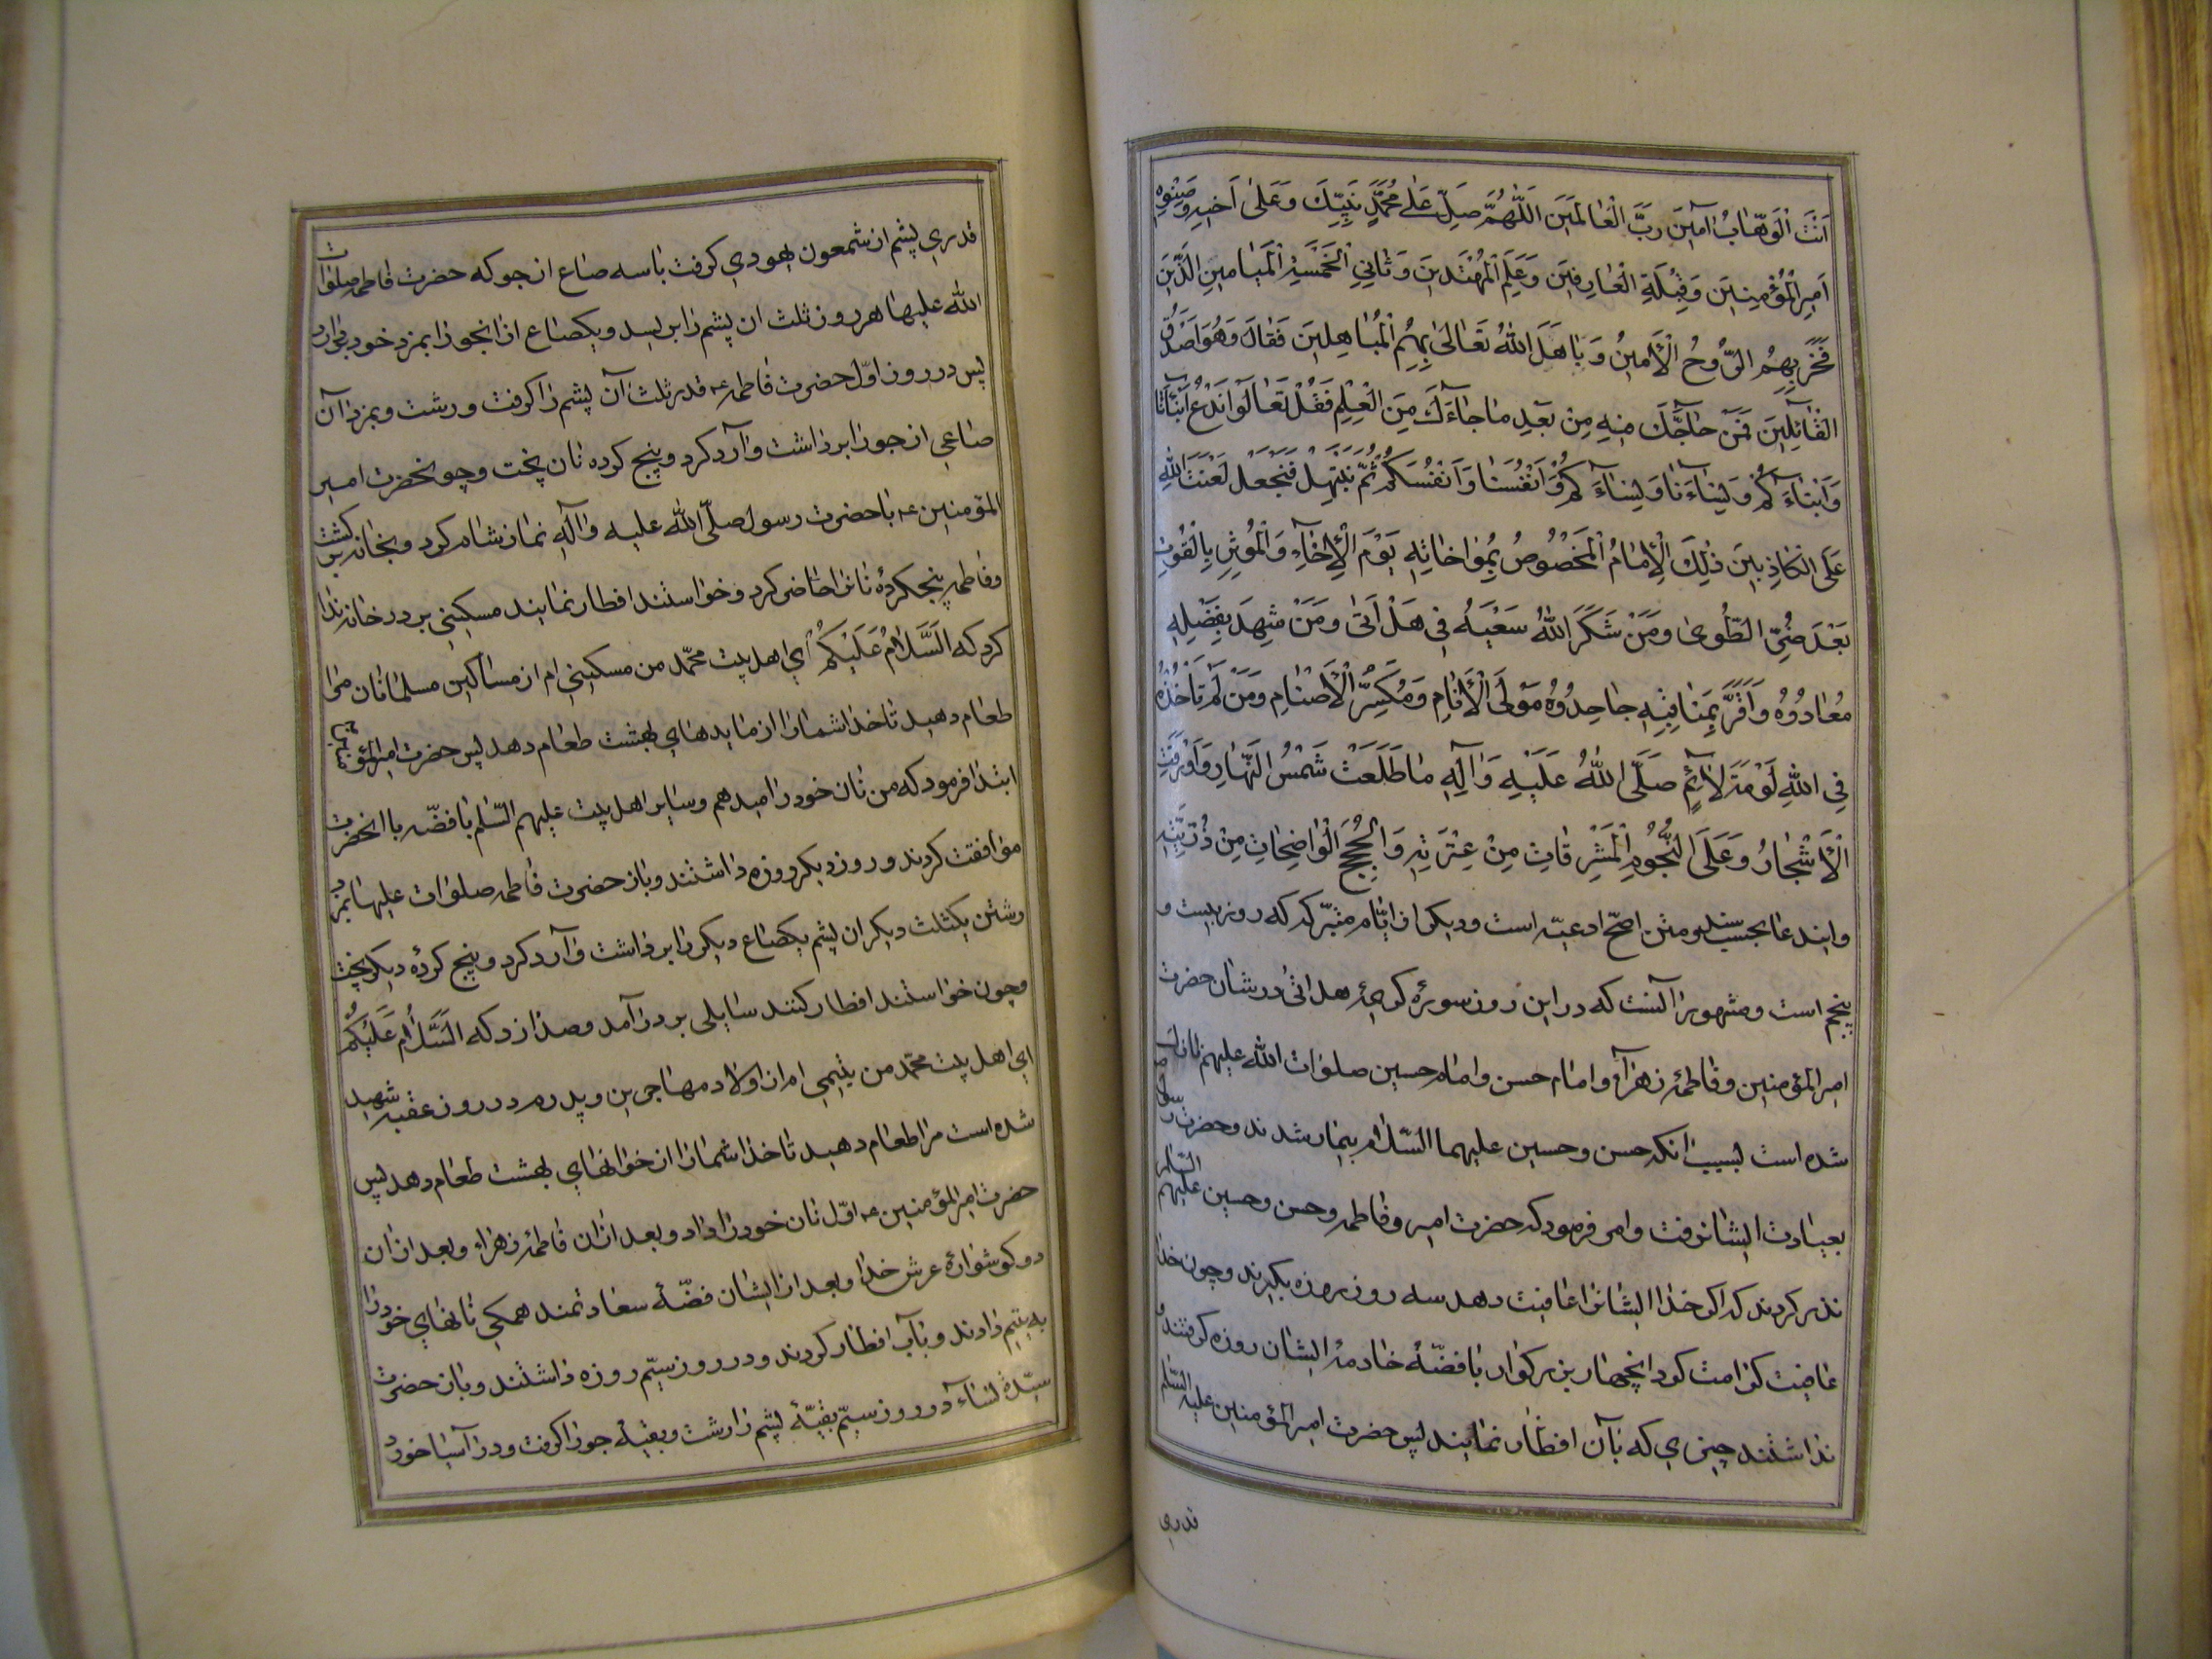 اَنْتَ الْوَهّابُ آمینَ رَبَّ الْعٰالَمینَ اَللّٰهُمَّ صَلِّ عَلٰی مُحَمَّدٍ نَبِیِّكَ وَعَلٰی اَخیهِ وَصِنْوِهِ
اَمیرِ الْمُؤْمِنینَ وَقِبْلَةِ الْعٰارِفینَ وَعَلَمِ الْمُهْتَدینَ وَثٰانِیِ الْخَمْسَةِ الْمَیٰامینِ الَّذینَ
فَخَرَ بِهِمُ الرُّوحُ الْأَمینُ وَبٰاهَلَ اللّٰهُ تَعٰالیٰ بِهِمُ الْمُبٰاهِلینَ فَقٰالَ وَهُوَ اَصْدَقُ
الْقٰائِلینَ فَمَنْ حٰاجَّكَ فیهِ مِنْ بَعْدِ مٰا جٰاءَكَ مِنَ الْعِلْمِ فَقُلْ تَعٰالَوْا نَدْعُ اَبْنٰاءَنٰا
وَاَبْنٰاءَكُمْ وَنِسٰاءَنٰا وَنِسٰاءَكُمْ وَاَنْفُسَنٰا وَاَنْفُسَكُمْ ثُمَّ نَبْتَهِلْ فَنَجْعَلْ لَعْنَتَ اللّٰهِ
عَلَی الْكٰاذِبینَ ذٰلِكَ الْاِمٰامُ الْمَخْصُوصُ بِمُوٰاخٰاتِهِ یَوْمَ الْاِخٰاءِ وَالْمُؤْثِرِ بِالْقُوتِ
بَعْدَ ضُرِّ الطَّویٰ وَمَنْ شَكَرَ اللّٰهُ سَعْیَهُ فی هَلْ اَتیٰ وَمَنْ شَهِدَ بِفَضْلِهِ
مُعٰادُوهُ وَاَقَرَّ بِمَنٰاقِبِهِ جٰاحِدُوهُ مَوْلَی الْأَنٰامِ وَمُكَسِّرِ الْأَصْنٰامِ وَمَنْ لَمْ تَأْخُذْهُ
فِی اللّٰهِ لَوْمَةُ لٰائِمٍ صَلَّی اللّٰهُ عَلَیْهِ وَآلِهِ مٰا طَلَعَتْ شَمْسُ النَّهٰارِ وَاَوْرَقَتِ
الْأَشْجٰارُ وَعَلَی النُّجُومِ الْمُشْرِقٰاتِ مِنْ عِتْرَتِهِ وَالْحُجَجِ الْوٰاضِحٰاتِ مِنْ ذُرِّیَّتِهِ
واین دعا بحسب سند ومتن اصحّ ادعیه است ودیگر از ایّام متبرّكه روز بیست و
پنجم است ومشهور آنست كه در این روز سورۀ كریمۀ هل اتی در شان حضرت
امیرالمؤمنین وفاطمۀ زهرآء وامام حسن وامام حسین صلوات اللّه علیهم نازل
شده است بسبب آنكه حسن وحسین علیهما السّلام بیمار شدند وحضرت رسول ص
بعیادت ایشان رفت وامر فرمود كه حضرت امیر وفاطمه وحسن وحسین علیهم السّلام
نذر كردند كه اگر خدا ایشانرا عافیت دهد سه روز روزه بگیرند وچون خدا
عافیت كرامت كرد آنچهار بزرگوار با فضّۀ خادمۀ ایشان روزه گرفتند و
نداشتند چیزی كه بآن افطار نمایند پس حضرت امیر المؤمنین علیه السّلام
قدری
قدری پشم از شمعون یهودی گرفت با سه صاع از جو كه حضرت فاطمه صلوات
اللّه علیها هر روز ثلث آن پشم را بریسد ویكصاع از آنجو را بمزد خود بردارد
پس در روز اوّل حضرت فاطمه ع قدر ثلث آن پشم را گرفت ورشت وبمزد آن
صاعی از جو را برداشت وآرد كرد وپنج گرده نان پخت وچون حضرت امیر
المؤمنین ع با حضرت رسول صلّی اللّه علیه وآله نماز شام كرد وبخانه برگشت
وفاطمه پنجگرده نانرا حاضر كرد وخواستند افطار نمایند مسكینی بر در خانه ندا
كرد كه اَلسَّلٰامُ عَلَیْكُمْ ای اهل بیت محمّد من مسكینی ام از مساكین مسلمانان مرا
طعام دهید تا خدا شما را از مایدهای بهشت طعام دهد پس حضرت امیرالمؤمنین ع
ابتدا فرمود كه من نان خود را میدهم وسایر اهل بیت علیهم السّلم با فضّه با آنحضرت
موافقت كردند وروز دیگر روزه داشتند وباز حضرت فاطمه صلوات علیها بمزد
رشتن یكثلث دیگر ان پشم یكصاع دیگر را برداشت وآرد كرد وپنج گردۀ دیگر پخت
وچون خواستند افطار كنند سایلی بر در آمد وصدا زد كه اَلسَّلٰامُ عَلَیْكُمْ
ای اهل بیت محمّد من یتیمی ام از اولاد مهاجرین وپدرم در روز عقبه شهید
شده است مرا طعام دهید تا خدا شما را از خوانهای بهشت طعام دهد پس
حضرت امیرالمؤمنین ع اوّل نان خود را داد وبعد از آن فاطمۀ زهراء وبعد از ان
دو گوشوارۀ عرش خدا وبعد از ایشان فضّۀ سعادتمند همگی نانهای خود را
به یتیم دادند وبآب افطار كردند ودر روز سیّم روزه داشتند وباز حضرت
سیّدۀ نساء در روز سیّم بقیّۀ پشم را رشت وبقیۀ جو را گرفت ودر آسیا خورد